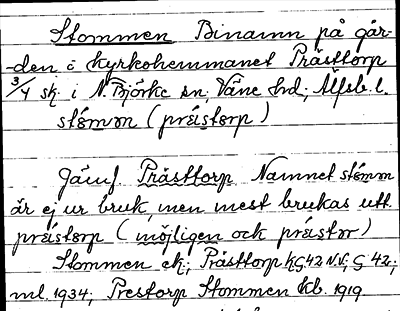 Stommen Binamn på går-
-den i kyrkohemmanet Prästtorp
3/4 sk. i N. Björke sn Väne hd; Älfsb. l.
stŏmɷn (préistɷrp)
Jämf. Prästtorp Namnet stŏmɷn
är ej ur bruk, men mest brukas utt.
préistɷrp (möjligen ock préistɷr)
Stommen ek.; Prästtorp KG42 N.V.; G 42;
ml. 1934; Prestorp Stommen kb. 1919.